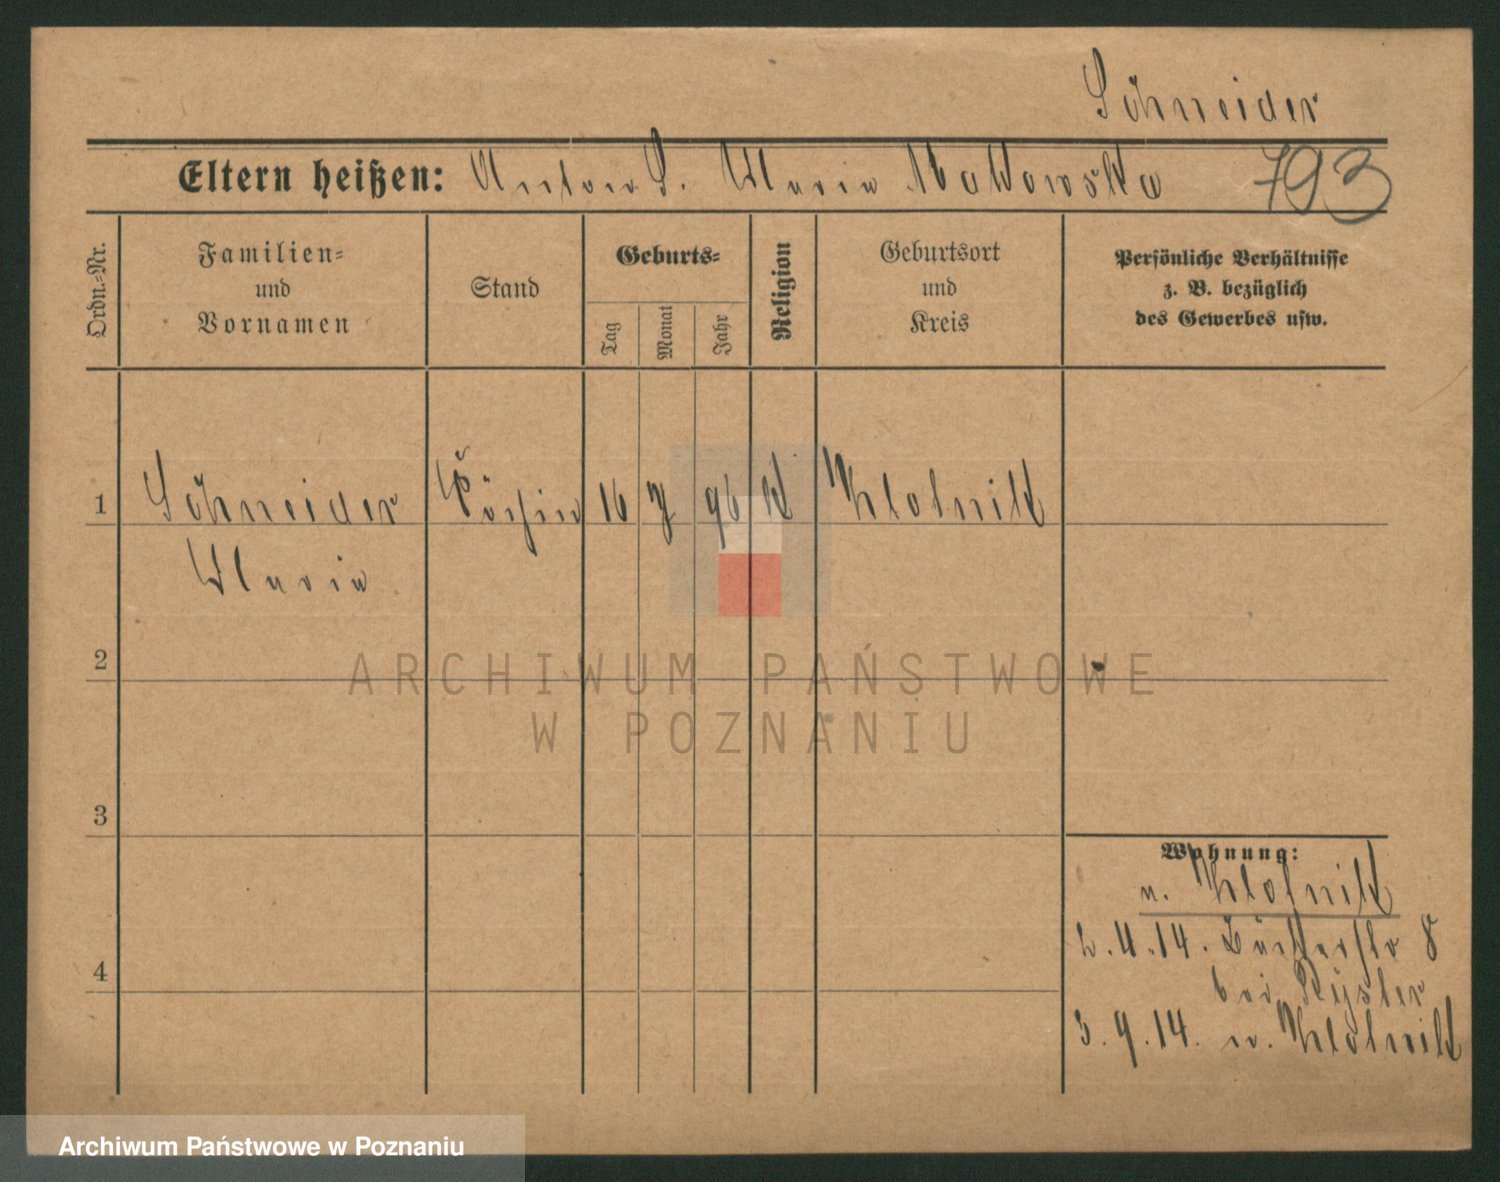 Schneider
Eltern heißen: Anton S. Maria Makowska 793
Ordn.-Nr.
Familien-
und
Vornamen
Stand
Geburts-
Tag
Monat
Jahr
Religion
Geburtsort
und
Kreis
Persönliche Verhältnisse
z. B. bezüglich
des Gewerbes usw.
1 Schneider Köchin 16 7 96 K Klotnik
Maria
2
3
4
Wohnung:
n. Klotnik
2.4.14. Bäckerstr 8
bei Ryster
3.9.14. n. Klotnik
ARCHIWUM PAŃSTWOWE
W POZNANIU
Archiwum Państwowe w Poznaniu